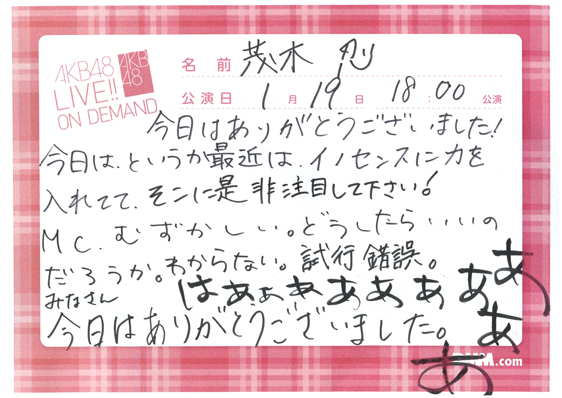 AKB48
LIVE!!
ON DEMAND
AKB
48
名前 茂木 忍
公演日 1月19日 18:00公演
今日はありがとうございました!
今日は、というか最近は、イノセンスに力を
入れてて、そこに是非注目して下さい!
MC、むずかしい。どうしたらいいの
だろうか。わからない。試行錯誤。
はあぁぁああぁああああ
みなさん
今日はありがとうございました。
.com